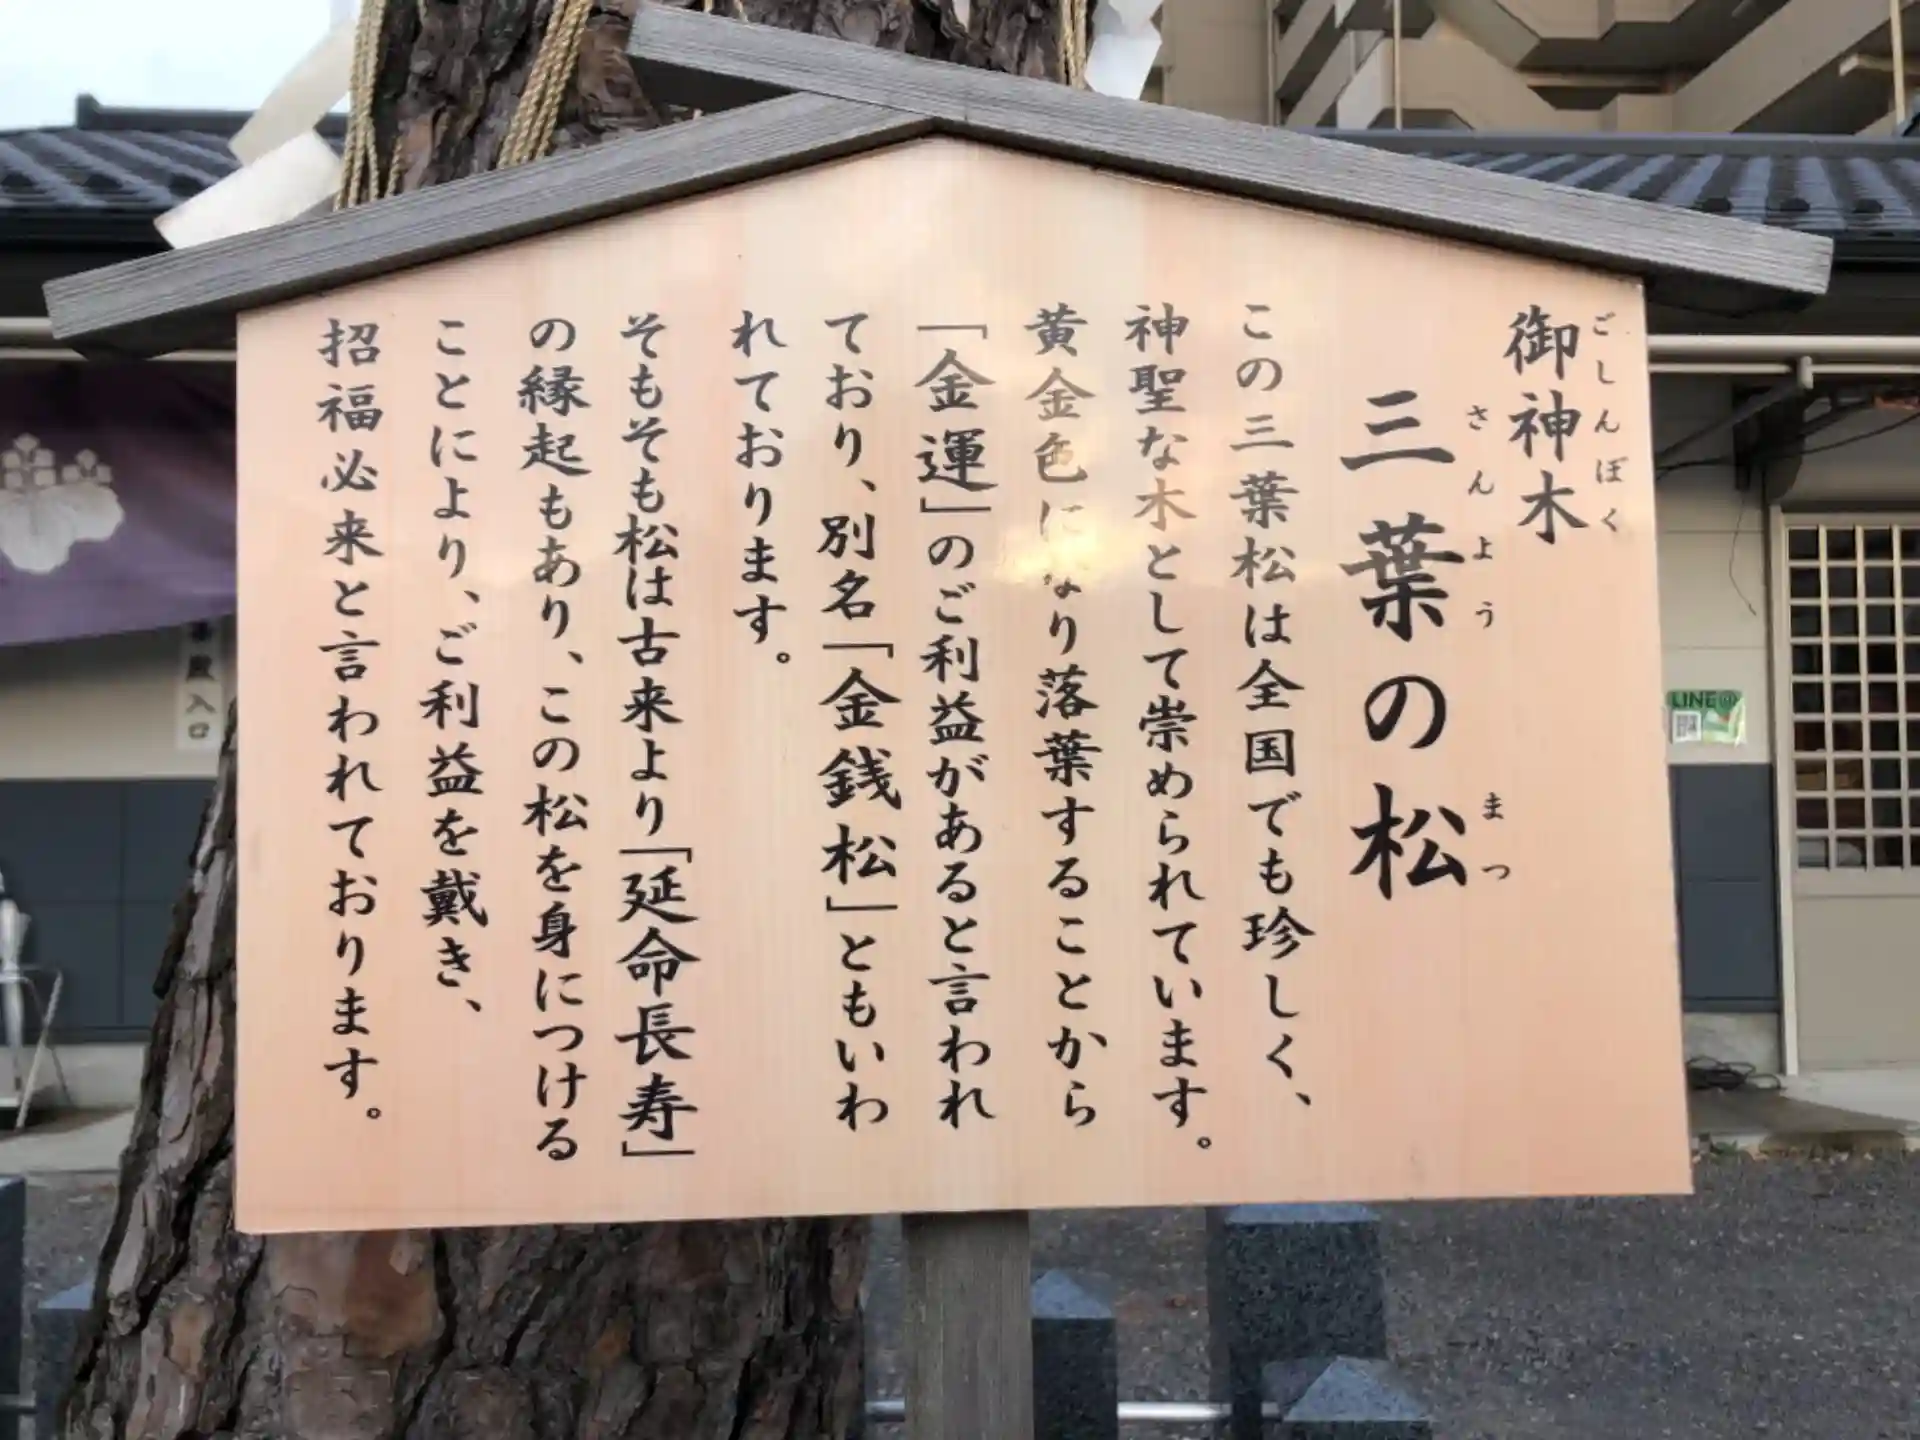 御神木
ごしんぼく
三葉の松
さんよう まつ
この三葉松は全国でも珍しく、
神聖な木として崇められています。
黄金色になり落葉することから
「金運」のご利益があると言われ
ており、別名「金銭松」ともいわ
れております。
そもそも松は古来より「延命長寿」
の縁起もあり、この松を身につける
ことにより、ご利益を戴き、
招福必来と言われております。
殿入口
LINE@